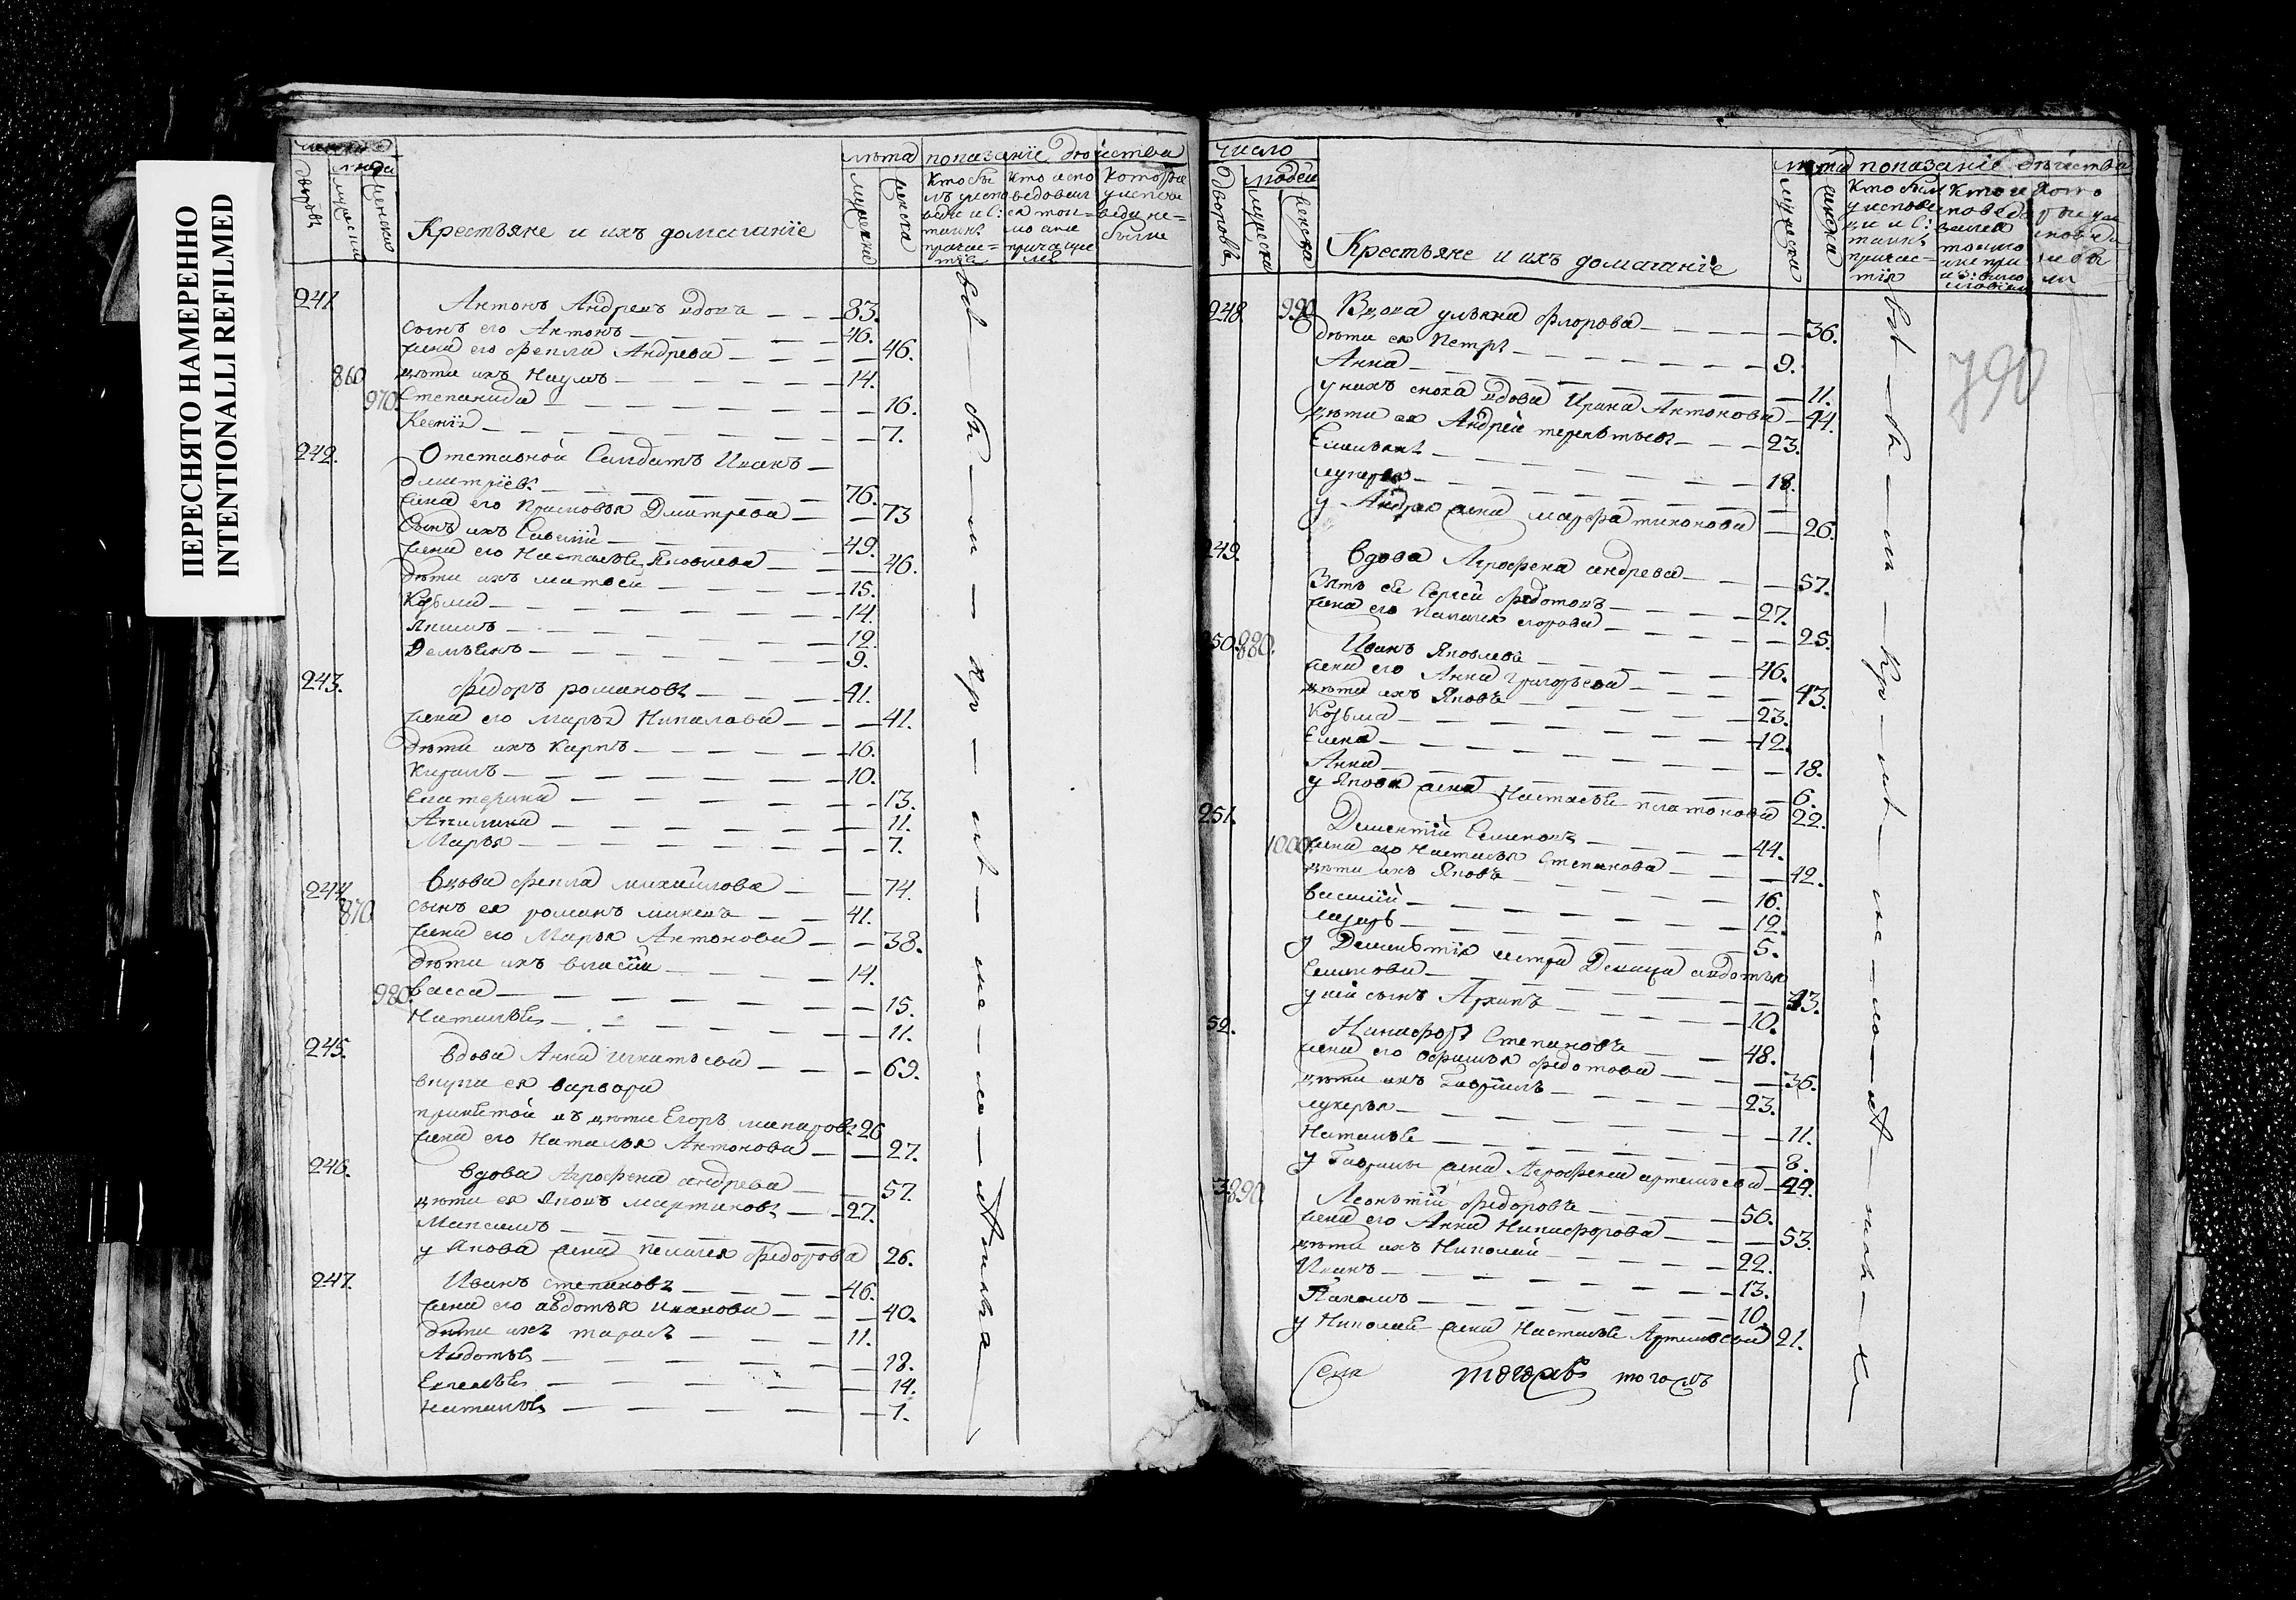 ПЕРЕСНЯТО НАМЕРЕННО
INTENTIONALLI REFILMED
число
люди
дворовъ
мужеска
женска
Крестьяне и ихъ домашніе
лѣта
мужска
женска
показаніе действа
241. Антонъ Андреевъ вдовъ 83.
сынъ его Антонъ 46.
жена его Фекла Андреева 46.
860 дѣти ихъ Наумъ 14.
970. Степанида 16.
Ксенія 7.
242. Отставной Салдатъ Иванъ
Дмитріевъ 76.
жена его Прасковья Дмитрева 73
Сынъ ихъ Савелій 49.
жена его Настасья Яковлева 46.
Дѣти ихъ матвей 15.
Козьма 14.
Якимъ 12.
Демьянъ 9.
243. Федоръ романовъ 41.
жена его марья Николаева 41.
Дѣти ихъ Карпъ 16.
10.
Екатерина 13.
Акилина 11.
Марья 7.
244. вдова фекла михайлова 74.
870 сынъ ея романъ 41.
жена его Марья Антонова 38.
Дѣти ихъ власій 14.
980. васса 15.
Наталья 11.
245. вдова Анна игнатьева 69.
внука ея варвара
принетой въ дѣти Егоръ макаровъ 26
жена его Наталья Антонова 27.
246. вдова Агрофена андрева 57.
дѣти ея Яковъ мартиновъ 27.
Максимъ
у Якова жена пелагея федорова 26.
247. Иванъ степановъ 46.
жена его авдотья иванова 40.
дѣти ихъ тарасъ 11.
Авдотья 18.
14.
наталья 1.
число
людей
дворовъ
мужеска
женска
Крестьяне и ихъ домашніе
лѣта
мужеска
женска
показаніе дѣйства
790
248. 990 Вдова ульяна флорова 36.
дѣти ея Петръ 9.
Анна 11.
у нихъ сноха вдова Ирина Антонова 44.
дѣти ея Андрей терентьевъ 23.
Емельянъ 18.
лукерья
у Андрея жена марфа тихонова 26.
249. вдова Агрофена андрева 57.
Зять ее Сергей федотовъ 27.
жена его пелагея егорова 25.
250. 880. Иванъ Яковлевъ 46.
жена его Анна Григорьева 43.
дѣти ихъ Яковъ 23.
Козьма 12.
Елена 18.
Анна 6.
у Якова жена Настасья платонова 22.
251. Дементій Семеновъ 44.
1000 жена его наталья Степанова 42.
дѣти ихъ Яковъ 16.
василій 12.
лазарь 5.
у Дементія сестра Девица авдотья
Семенова 43.
у ней сынъ Архипъ 10.
52. Никифоръ Степановъ 48.
жена его офимья федотова 36.
дѣти ихъ Гаврилъ 23.
лукерья 11.
Наталья 8.
у Гаврилы жена Агрофена артемьева 24.
3 890. Леонтій федоровъ 56.
жена его Анна Никифорова 53.
дѣти ихъ Николай 22.
Иванъ 13.
Пахомъ 10.
у Николая жена Наталья Артемьева 21.
Села тогожъ тогожъ